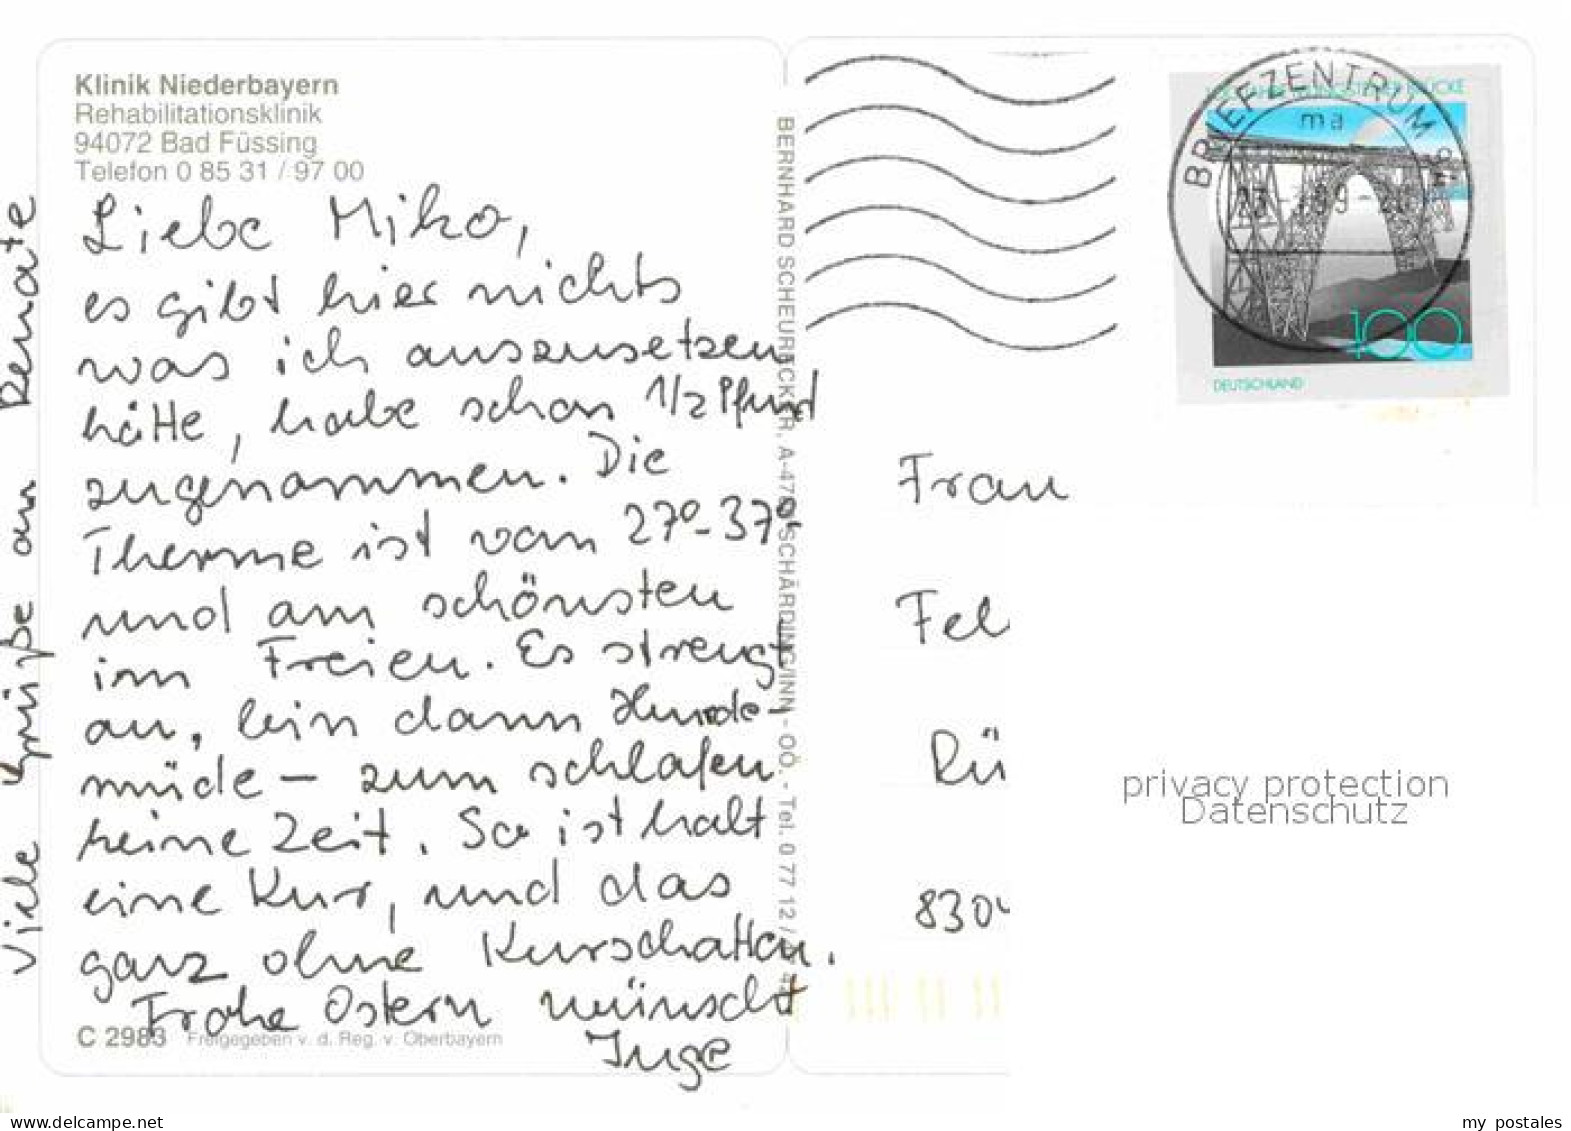 Klinik Niederbayern
Rehabilitationsklinik
94072 Bad Füssing
Telefon 0 85 31 / 97 00
Liebe Miko,
es gibt hier nichts
was ich auszusetzen
hätte, habe schon 1/2 Pfund
zugenommen. Die
Therme ist von 27°-37°
und am schönsten
im Freien. Es strengt
an, bin dann Hunde-
müde – zum schlafen
keine Zeit. So ist halt
eine Kur, und das
ganz ohne Kurschatten.
Frohe Ostern wünscht
Inge
Viele Grüße an Renate
C 2983 Freigegeben v. d. Reg. v. Oberbayern
BERNHARD SCHEURECKER, A-478 SCHÄRDING/INN - OÖ. - Tel. 0 77 12 /
BRIEFZENTRUM 94
ma
BRÜCKE
100
DEUTSCHLAND
Frau
Fel
Rü
830
privacy protection
Datenschutz
www.delcampe.net
my_postales